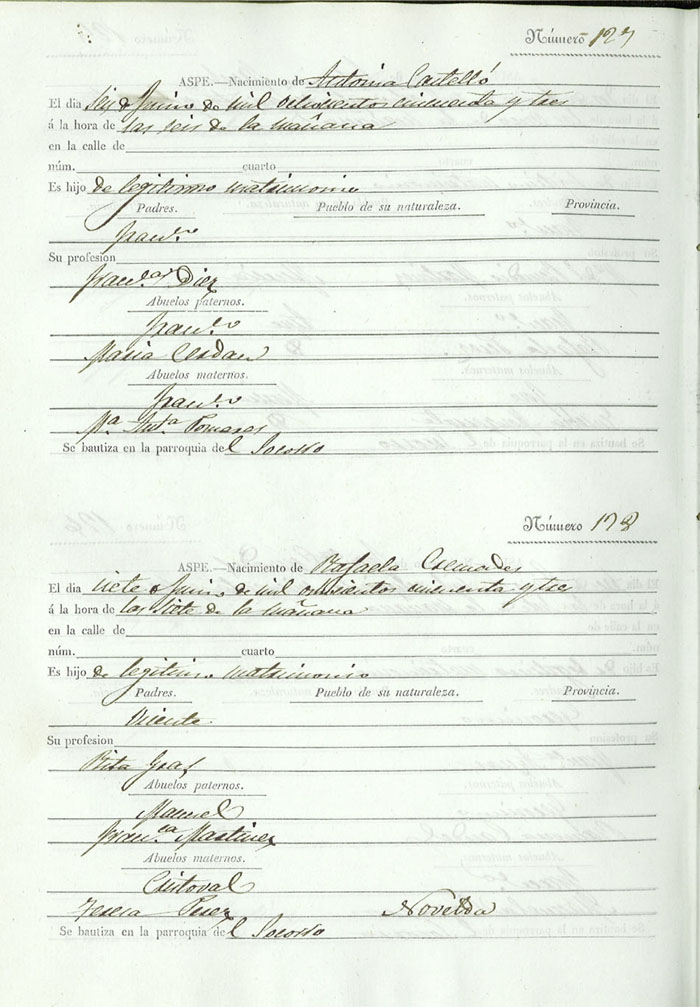 Número 127
ASPE.—Nacimiento de Antonia Castelló
El dia seis de Junio de mil ochocientos cincuenta y tres
á la hora de las seis de la mañana
en la calle de
núm. cuarto
Es hijo de legitimo matrimonio
Padres. Pueblo de su naturaleza. Provincia.
Franco
Su profesion
Franca Diez
Abuelos paternos.
Franco
Maria Cerdan
Abuelos maternos.
Franco
Ma Anta Pomares
Se bautiza en la parroquia del Socorro
Número 128
ASPE.—Nacimiento de Rafaela Cremades
El dia siete Junio de mil ochocientos cincuenta y tres
á la hora de las siete de la mañana
en la calle de
núm. cuarto
Es hijo de legitimo matrimonio
Padres. Pueblo de su naturaleza. Provincia.
Vicente
Su profesion
Rita Graf
Abuelos paternos.
Manuel
Franca Martinez
Abuelos maternos.
Cristoval
Teresa Perez Novelda
Se bautiza en la parroquia del Socorro